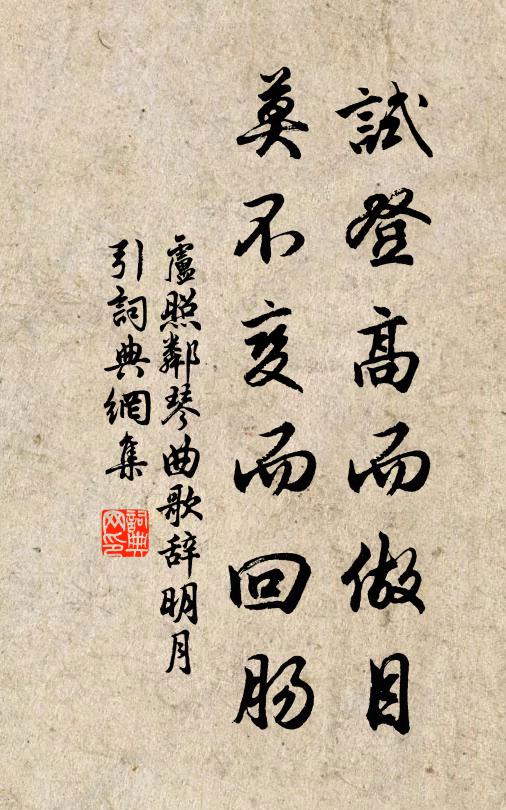 試登高而傲目
莫不變而回腸
盧照鄰琴曲歌辭明月
引詞典網集
詞典
网印